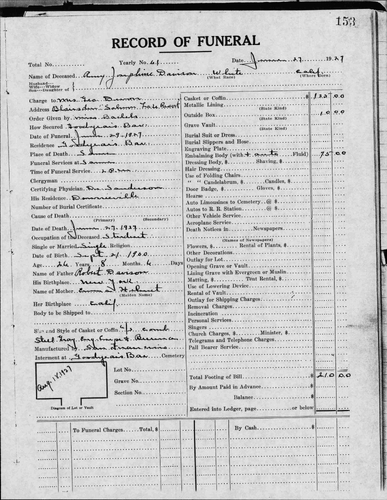 153
RECORD OF FUNERAL
Total No. Yearly No. 61 Date June 27 1927
Name of Deceased Amy Josephine Davison White Calif.
(What Race) (Where Born)
Husband
Wife of
Son
Daughter
Charge to Mrs. Geo.
Address
Order Given by Miss
How Secured Goodyears Bar
Date of Funeral June 29-1927.
Residence Goodyears Bar
Place of Death Same
Funeral Services at Same
Time of Funeral Service 2 P.M.
Clergyman
Certifying Physician Dr.
His Residence Downieville
Number of Burial Certificate
Cause of Death
(Primary) (Secondary)
Date of Death June 27-1927
Occupation of Deceased Student
Single or Married Single Religion
Date of Birth Sept 21 1900
Aged 26 Years 8 Months 6 Days
Name of Father Robert Davison
His Birthplace New York
Name of Mother Emma
(Maiden Name)
Her Birthplace Calif
Body to be Shipped to
Size and Style of Casket or Coffin
Manufactured by San Francisco
Interment at Goodyears Bar Cemetery
Lot No.
Grave No.
Section No.
Diagram of Lot or Vault
Casket or Coffin $ 125 00
Metallic Lining
(State Kind)
Outside Box 10 00
(State Kind)
Grave Vault
(State Kind)
Burial Suit or Dress
Burial Slippers and Hose
Engraving Plate
Embalming Body (with + auto Fluid) 75 00
Dressing Body, $ Shaving, $
Hair Dressing
Use of Folding Chairs
" " Candelabrum, $ Candles, $
Door Badge, $ Gloves, $
Hearse
Auto Limousines to Cemetery @ $
Autos to R. R. Station @ $
Other Vehicle Service
Aeroplane Service
Death Notices in Newspapers
(Names of Newspapers)
Flowers, $ Rental of Plants, $
Other Decorations
Outlay for Lot
Opening Grave or Vault
Lining Grave with Evergreen or Muslin
Matting, $ Tent Rental, $
Use of Lowering Device
Rental of Vault
Outlay for Shipping Charges
Removal Charges
Incineration
Personal Services
Singers
Church Charges, $ Minister, $
Telegrams and Telephone Charges
Pall Bearer Service
Total Footing of Bill $ 210 00
By Amount Paid in Advance
Balance $
Entered into Ledger, page or below.
To Funeral Charges Total, $ By Cash $